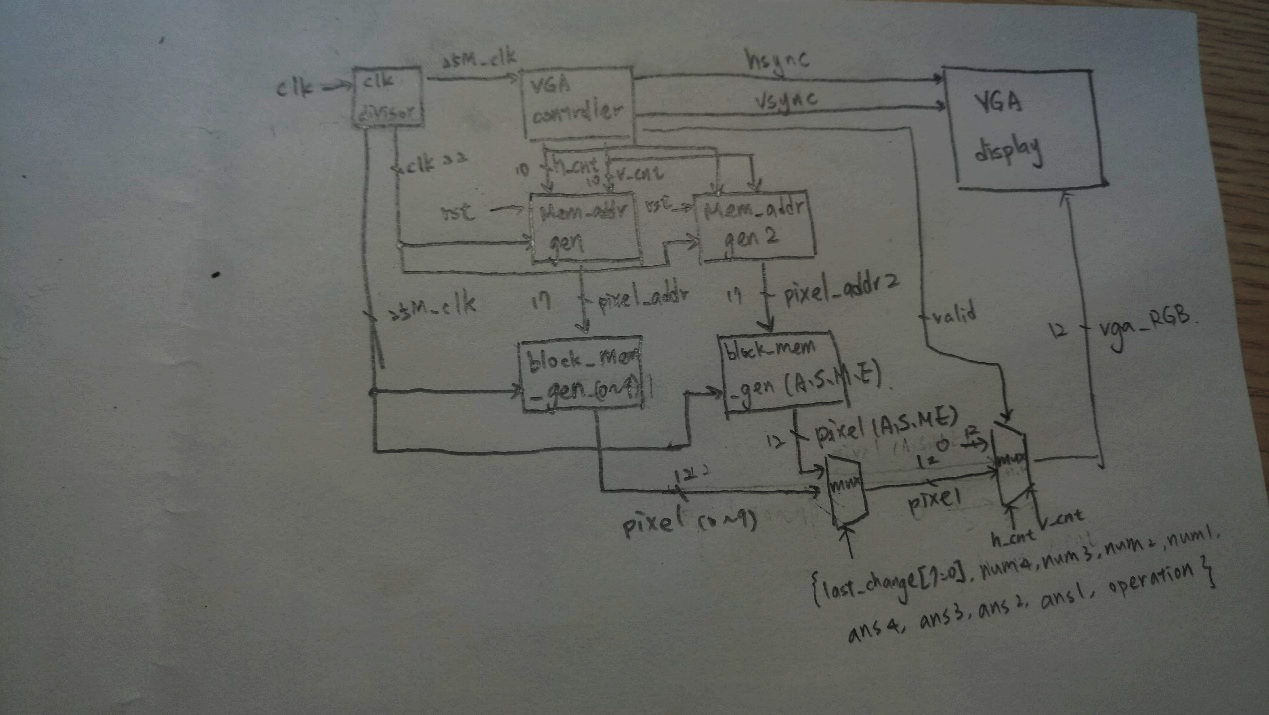 clk
clk
divisor
25M_clk
VGA
controller
hsync
vsync
VGA
display
clk22
10
h_cnt
10
v_cnt
rst
Mem_addr
gen
rst
Mem_addr
gen 2
25M_clk
17
pixel_addr
17
pixel_addr2
valid
12
vga_RGB
block_mem
_gen (0~9)
block_mem
_gen (A.S.M.E)
12
pixel (A.S.M.E)
12
pixel (0~9)
mux
12
pixel
0
12
mux
h_cnt
v_cnt
{last_change[7:0], num4, num3, num2, num1,
ans4, ans3, ans2, ans1, operation}